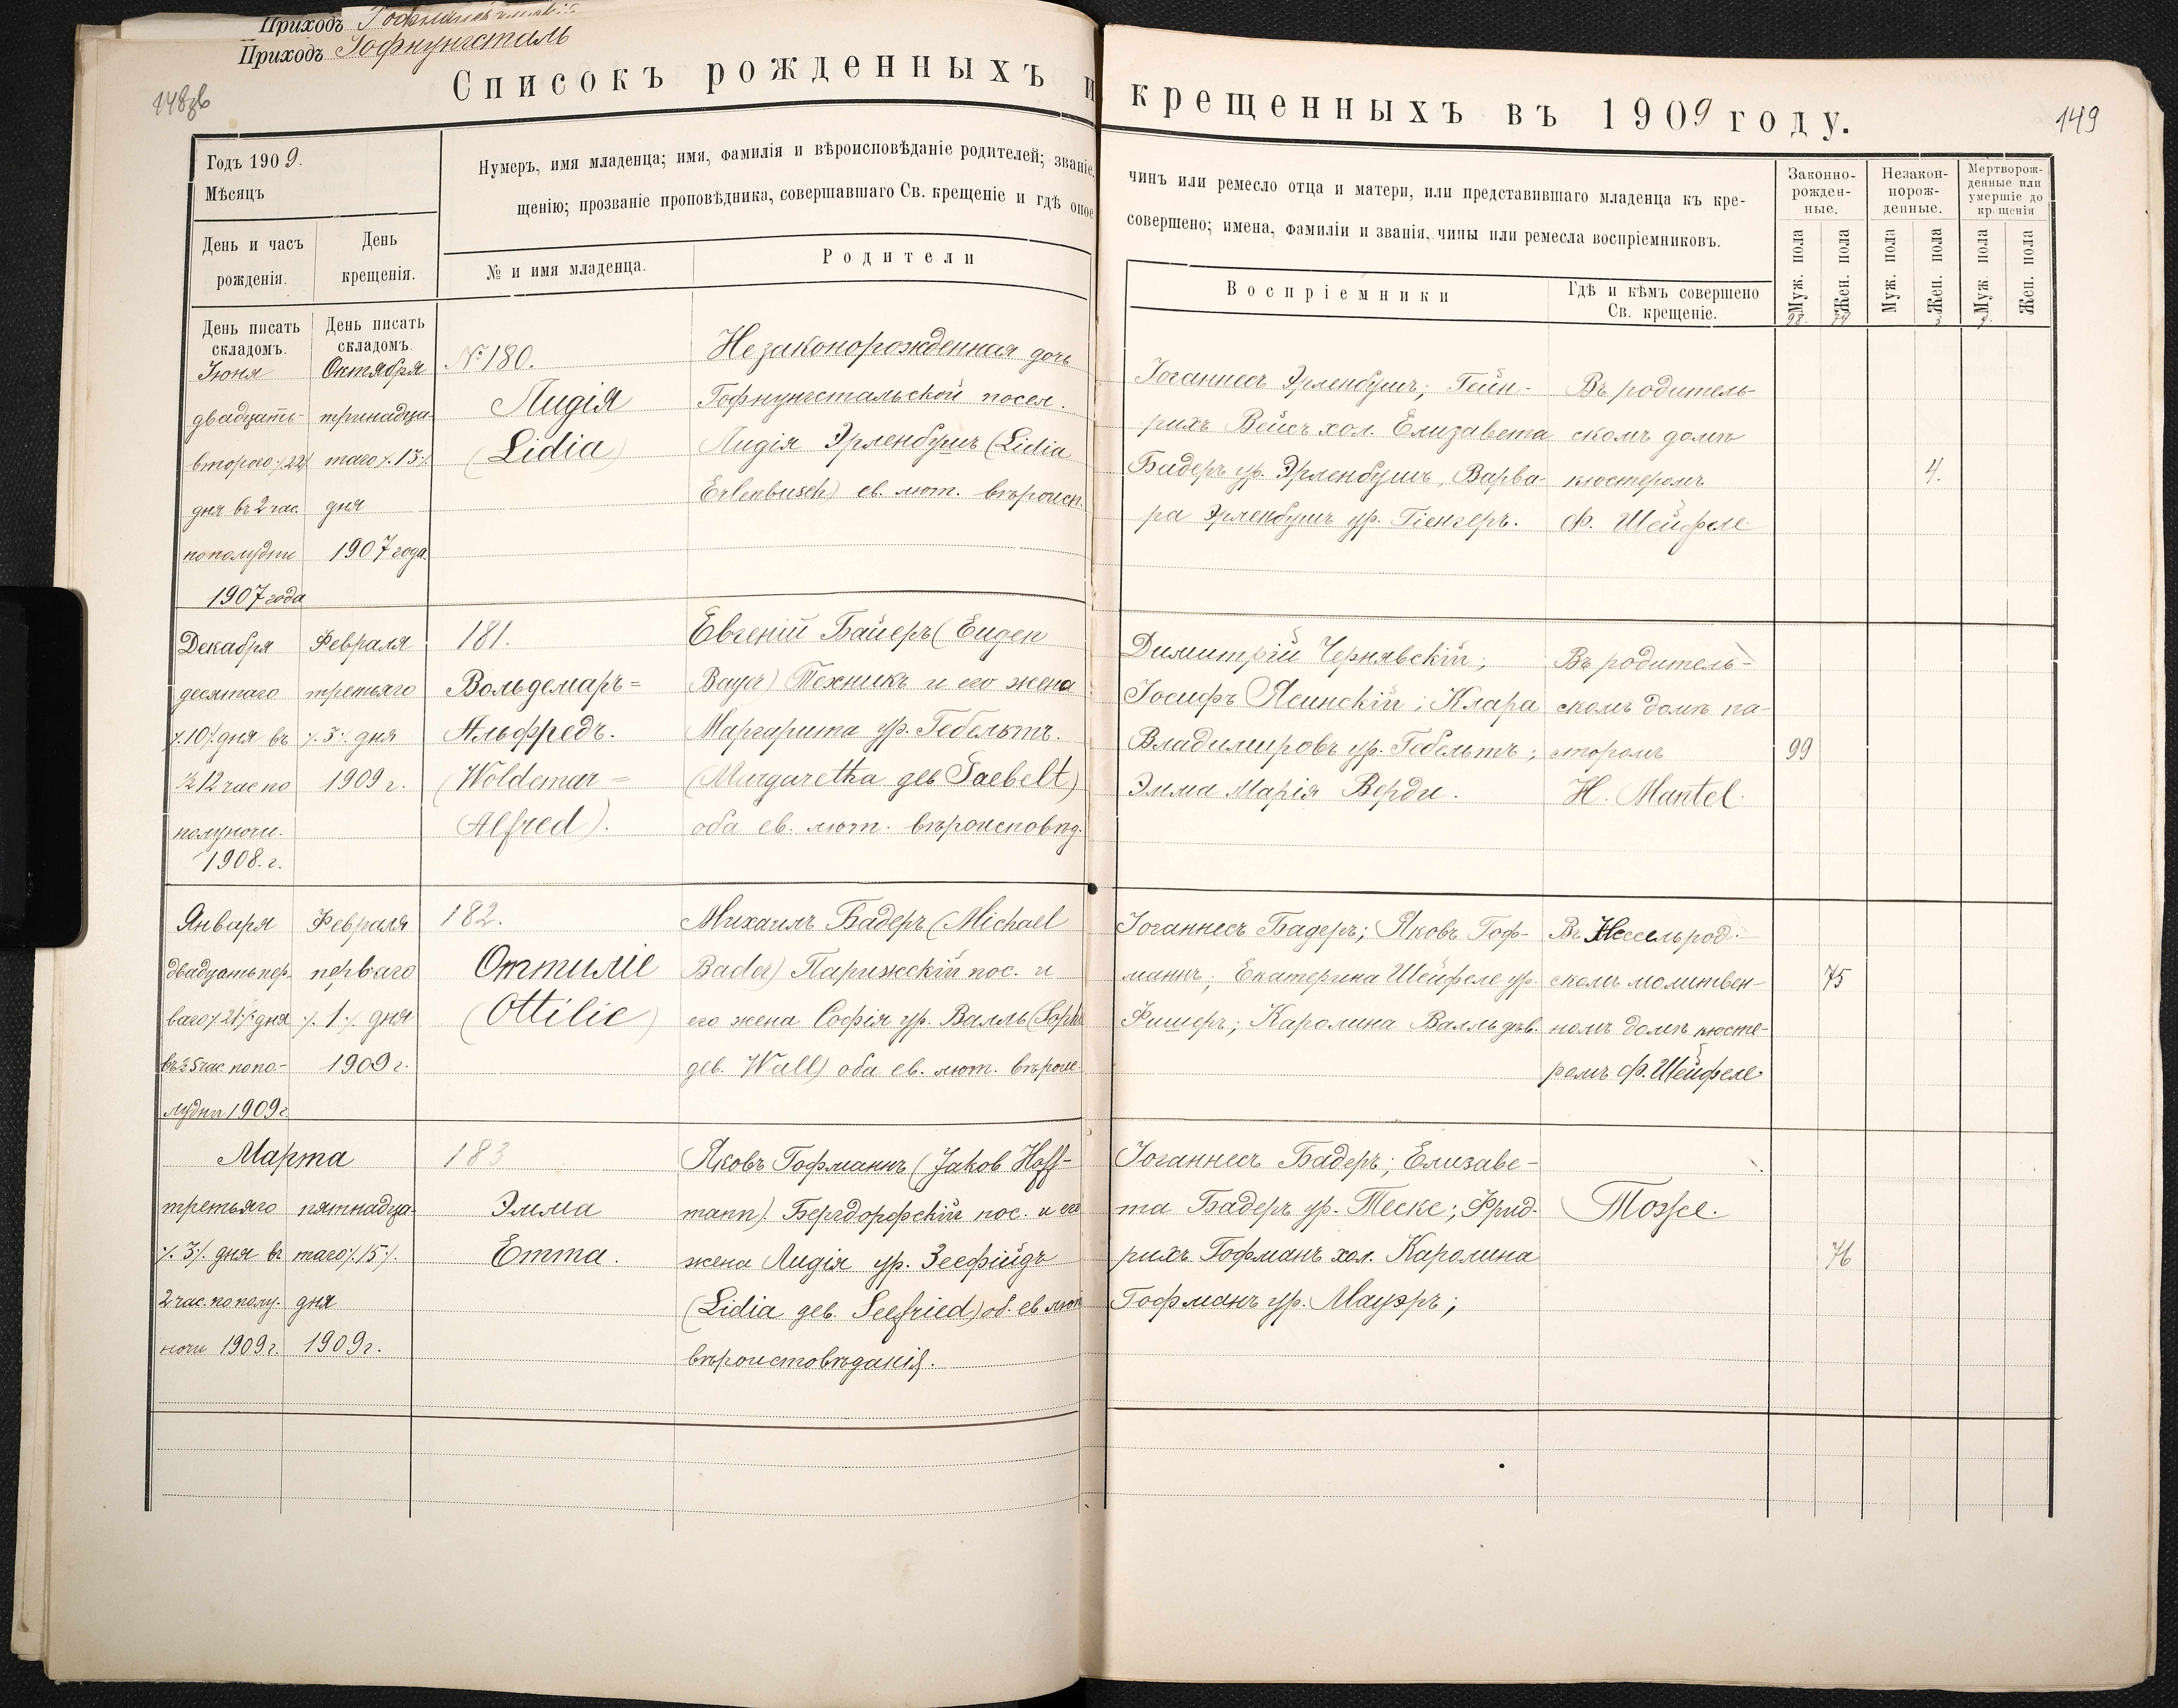 Приходъ
Приходъ Гофнунгсталь
Списокъ рожденныхъ и крещенныхъ въ 1909 году.
149
Годъ 1909.
Мѣсяцъ
День и часъ
рожденія.
День
крещенія.
Нумеръ, имя младенца; имя, фамилія и вѣроисповѣданіе родителей; званіе,
щенію; прозваніе проповѣдника, совершавшаго Св. крещеніе и гдѣ оное
№ и имя младенца.
Родители
чинъ или ремесло отца и матери, или представившаго младенца къ кре-
совершено; имена, фамиліи и званія, чины или ремесла воспріемниковъ.
Воспріемники
Гдѣ и кѣмъ совершено
Св. крещеніе.
Законно-
рожден-
ные.
Незакон-
норож-
денные.
Мертворож-
денные или
умершіе до
крещенія
Муж. пола
Жен. пола
Муж. пола
Жен. пола
Муж. пола
Жен. пола
98.
74
3
День писать
складомъ.
День писать
складомъ.
Іюня
двадцать-
второго ./.22./.
дня въ 2 час.
пополудни
1907 года
Октября
тринадца-
таго ./.13./.
дня
1907 года.
№ 180.
Лидія
(Lidia)
Незаконорожденная дочь
Гофнунгстальской посел.
Лидія Эрленбушъ (Lidia
Erlenbusch) ев. лют. вѣроисп.
Іоганнесъ Эрленбушъ; Гейн-
рихъ Вейсъ хол. Елизавета
Бадеръ ур. Эрленбушъ, Варва-
ра Эрленбушъ ур. Гіенгеръ.
Въ родитель-
скомъ домѣ
кюстеромъ
Ф. Шейфеле
4.
Декабря
десятаго
./.10./. дня въ
½ 12 час по
полуночи.
1908. г.
Февраля
третьяго
./.3./. дня
1909 г.
181.
Вольдемаръ=
Альфредъ.
(Woldemar=
Alfred).
Евгеній Байеръ (Eugen
Bayer) Техникъ и его жена
Маргарита ур. Гебельтъ.
(Margaretha geb Gaebelt)
оба ев. лют. вѣроисповѣд.
Димитрій Чернявскій;
Іосифъ Ясинскій; Клара
Владимировъ ур. Гебельтъ;
Эмма Марія Верди.
Въ родитель-
скомъ домѣ па-
сторомъ
H. Mantel.
99
Января
двадцать пер-
ваго ./.21./. дня
въ ½ 5 час. попо-
лудни 1909 г.
Февраля
перваго
./.1./. дня
1909 г.
182.
Оттиліе
(Ottilie)
Михаилъ Бадеръ (Michael
Bader) Парижскій пос. и
его жена Софія ур. Валль (Sophie
geb. Wall) оба ев. лют. вѣроис.
Іоганнесъ Бадеръ; Яковъ Гоф-
манъ; Екатерина Шейфеле ур.
Фишеръ; Каролина Валль дѣв.
Въ Нессельрод-
скомъ молитвен-
номъ домѣ кюсте-
ромъ Ф. Шейфеле.
75
Марта
третьяго
./.3./. дня въ
2 час. по полу-
ночи 1909 г.
пятнадца-
таго ./.15./.
дня
1909 г.
183
Эмма
Emma.
Яковъ Гофманнъ (Jakob Hoff-
mann). Бергдорфскій пос. и его
жена Лидія ур. Зеефрідъ
(Lidia geb. Seefried) об. ев лют
вѣроисповѣданія.
Іоганнесъ Бадеръ; Елизаве-
та Бадеръ ур. Теске; Фрид-
рихъ Гофманъ хол. Каролина
Гофманъ ур. Мауэръ;
Тоже.
76